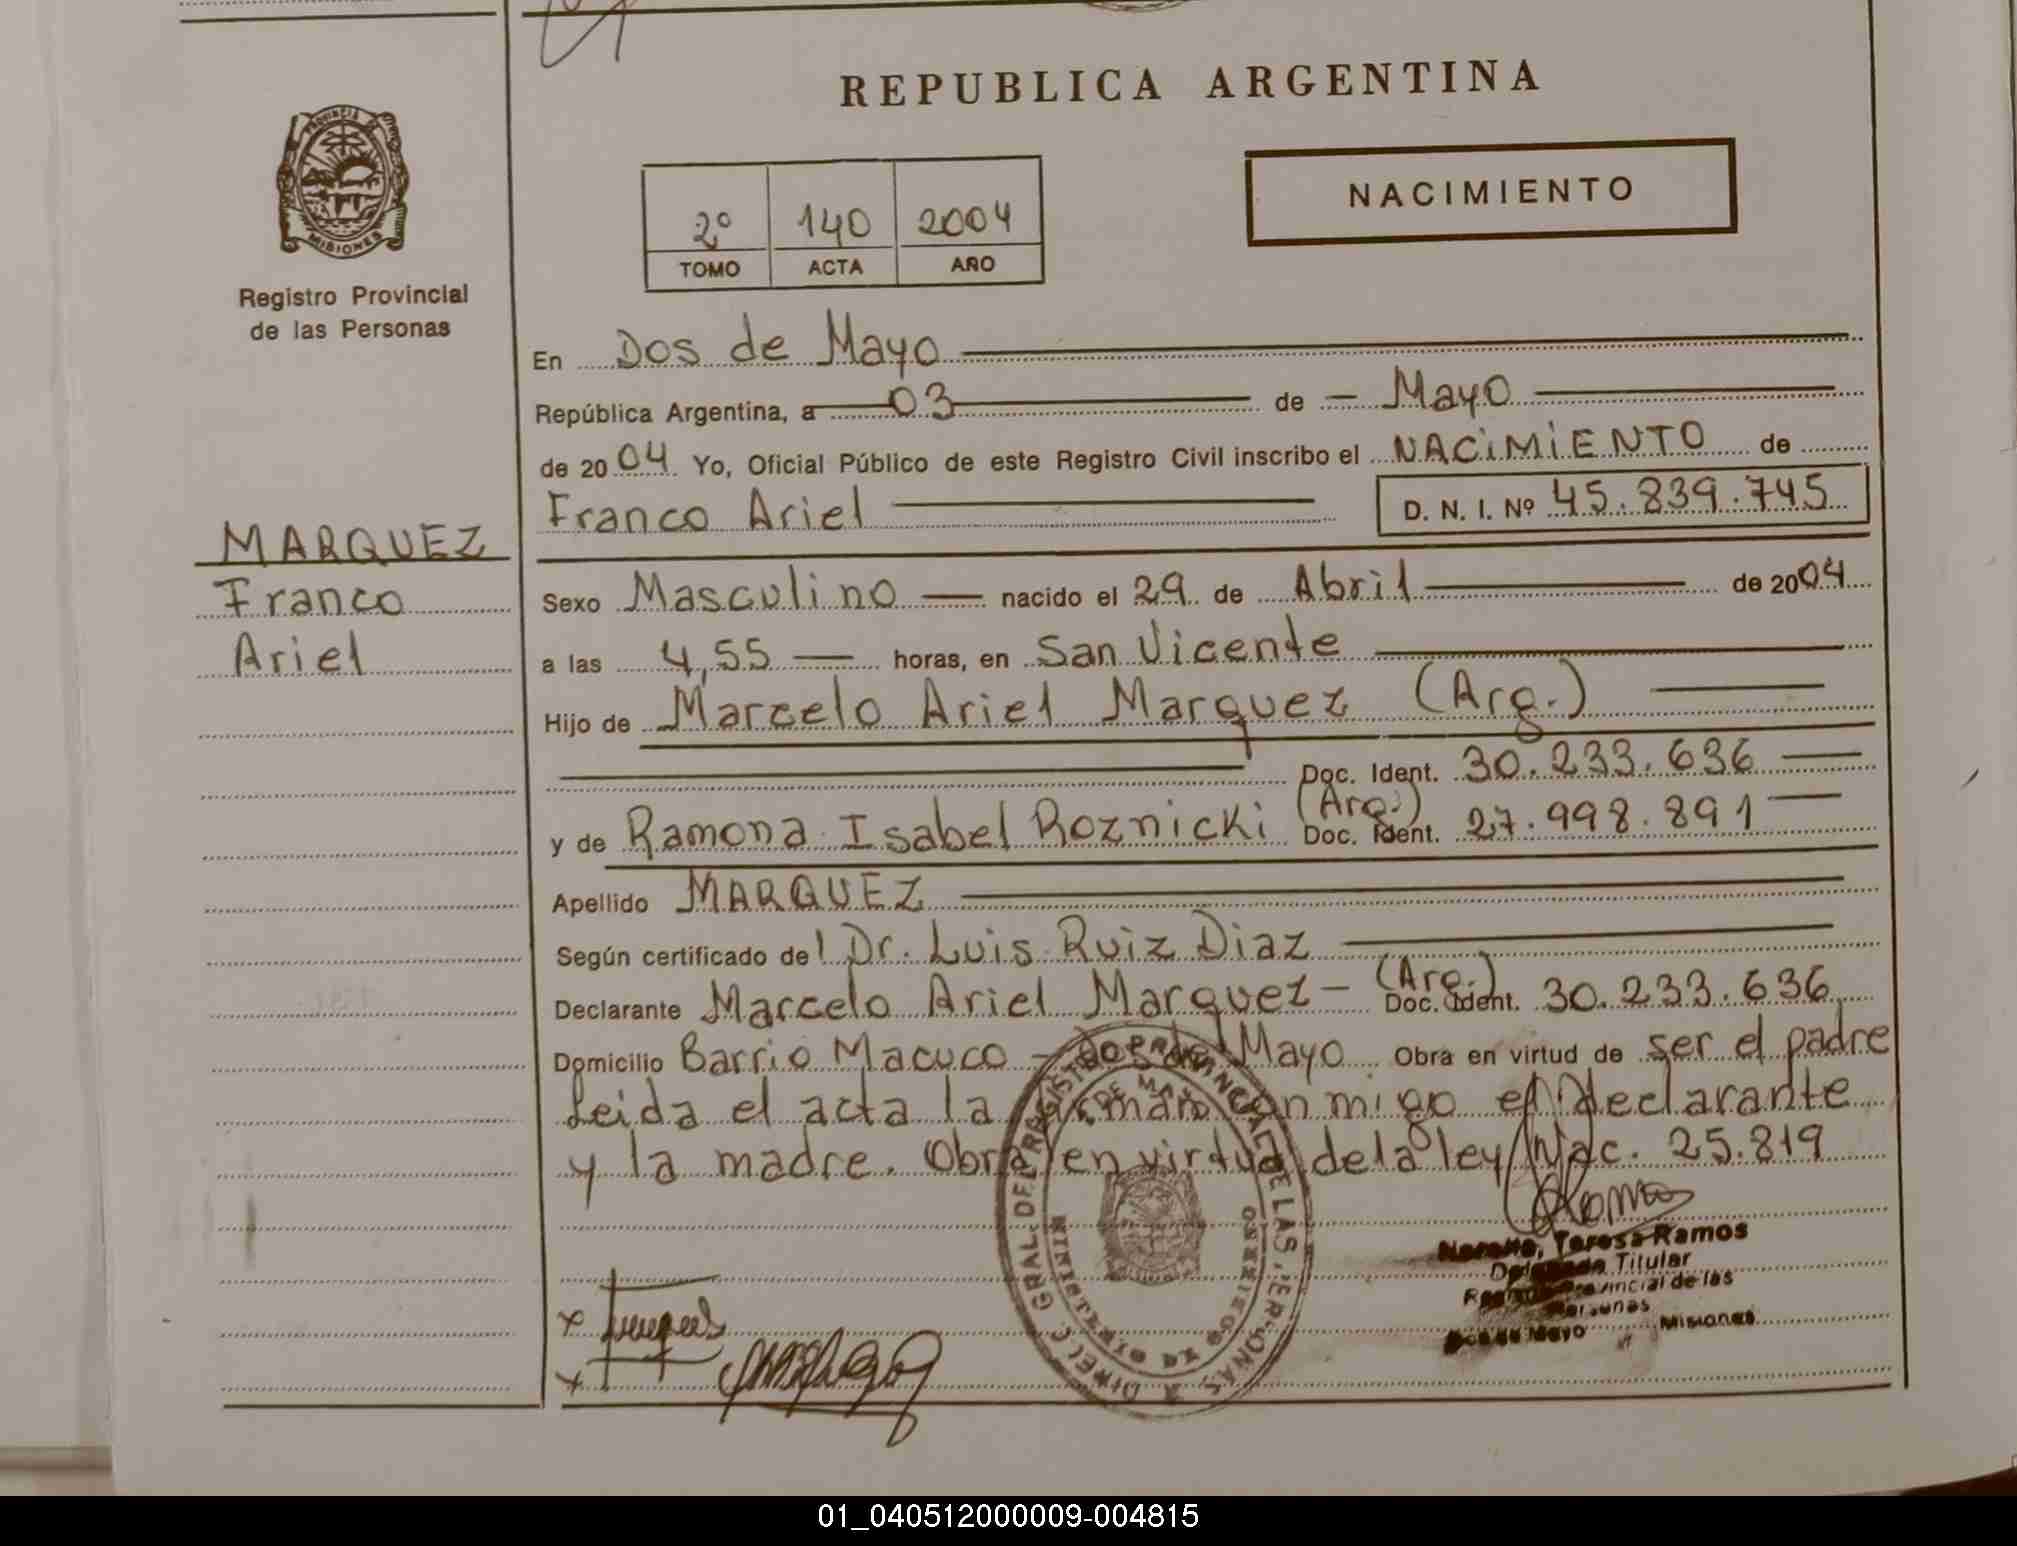 REPUBLICA ARGENTINA
PROVINCIA DE
MISIONES
Registro Provincial
de las Personas
NACIMIENTO
2º 140 2004
TOMO ACTA AÑO
En Dos de Mayo
República Argentina, a 03 de - Mayo
de 2004 Yo, Oficial Público de este Registro Civil inscribo el NACIMIENTO de
Franco Ariel D. N. I. Nº 45.839.745
MARQUEZ
Franco
Ariel
Sexo Masculino nacido el 29 de Abril de 2004
a las 4,55 horas, en San Vicente
Hijo de Marcelo Ariel Marquez (Arg.)
Doc. Ident. 30.233.636
y de Ramona Isabel Roznicki (Arg.) Doc. Ident. 27.998.891
Apellido MARQUEZ
Según certificado del Dr. Luis Ruiz Diaz
Declarante Marcelo Ariel Marquez - (Arg.) Doc. Ident. 30.233.636
Domicilio Barrio Macuco - Dos de Mayo Obra en virtud de ser el padre
Leida el acta la firman conmigo el declarante
y la madre. Obra en virtud de la ley Nac. 25.819
DIREC. GRAL. DEL REGISTRO PROVINCIAL DE LAS PERSONAS
MINISTERIO DE GOBIERNO
Teresa Ramos
Delegada Titular
Registro Provincial de las
Personas
Dos de Mayo Misiones
01_040512000009-004815